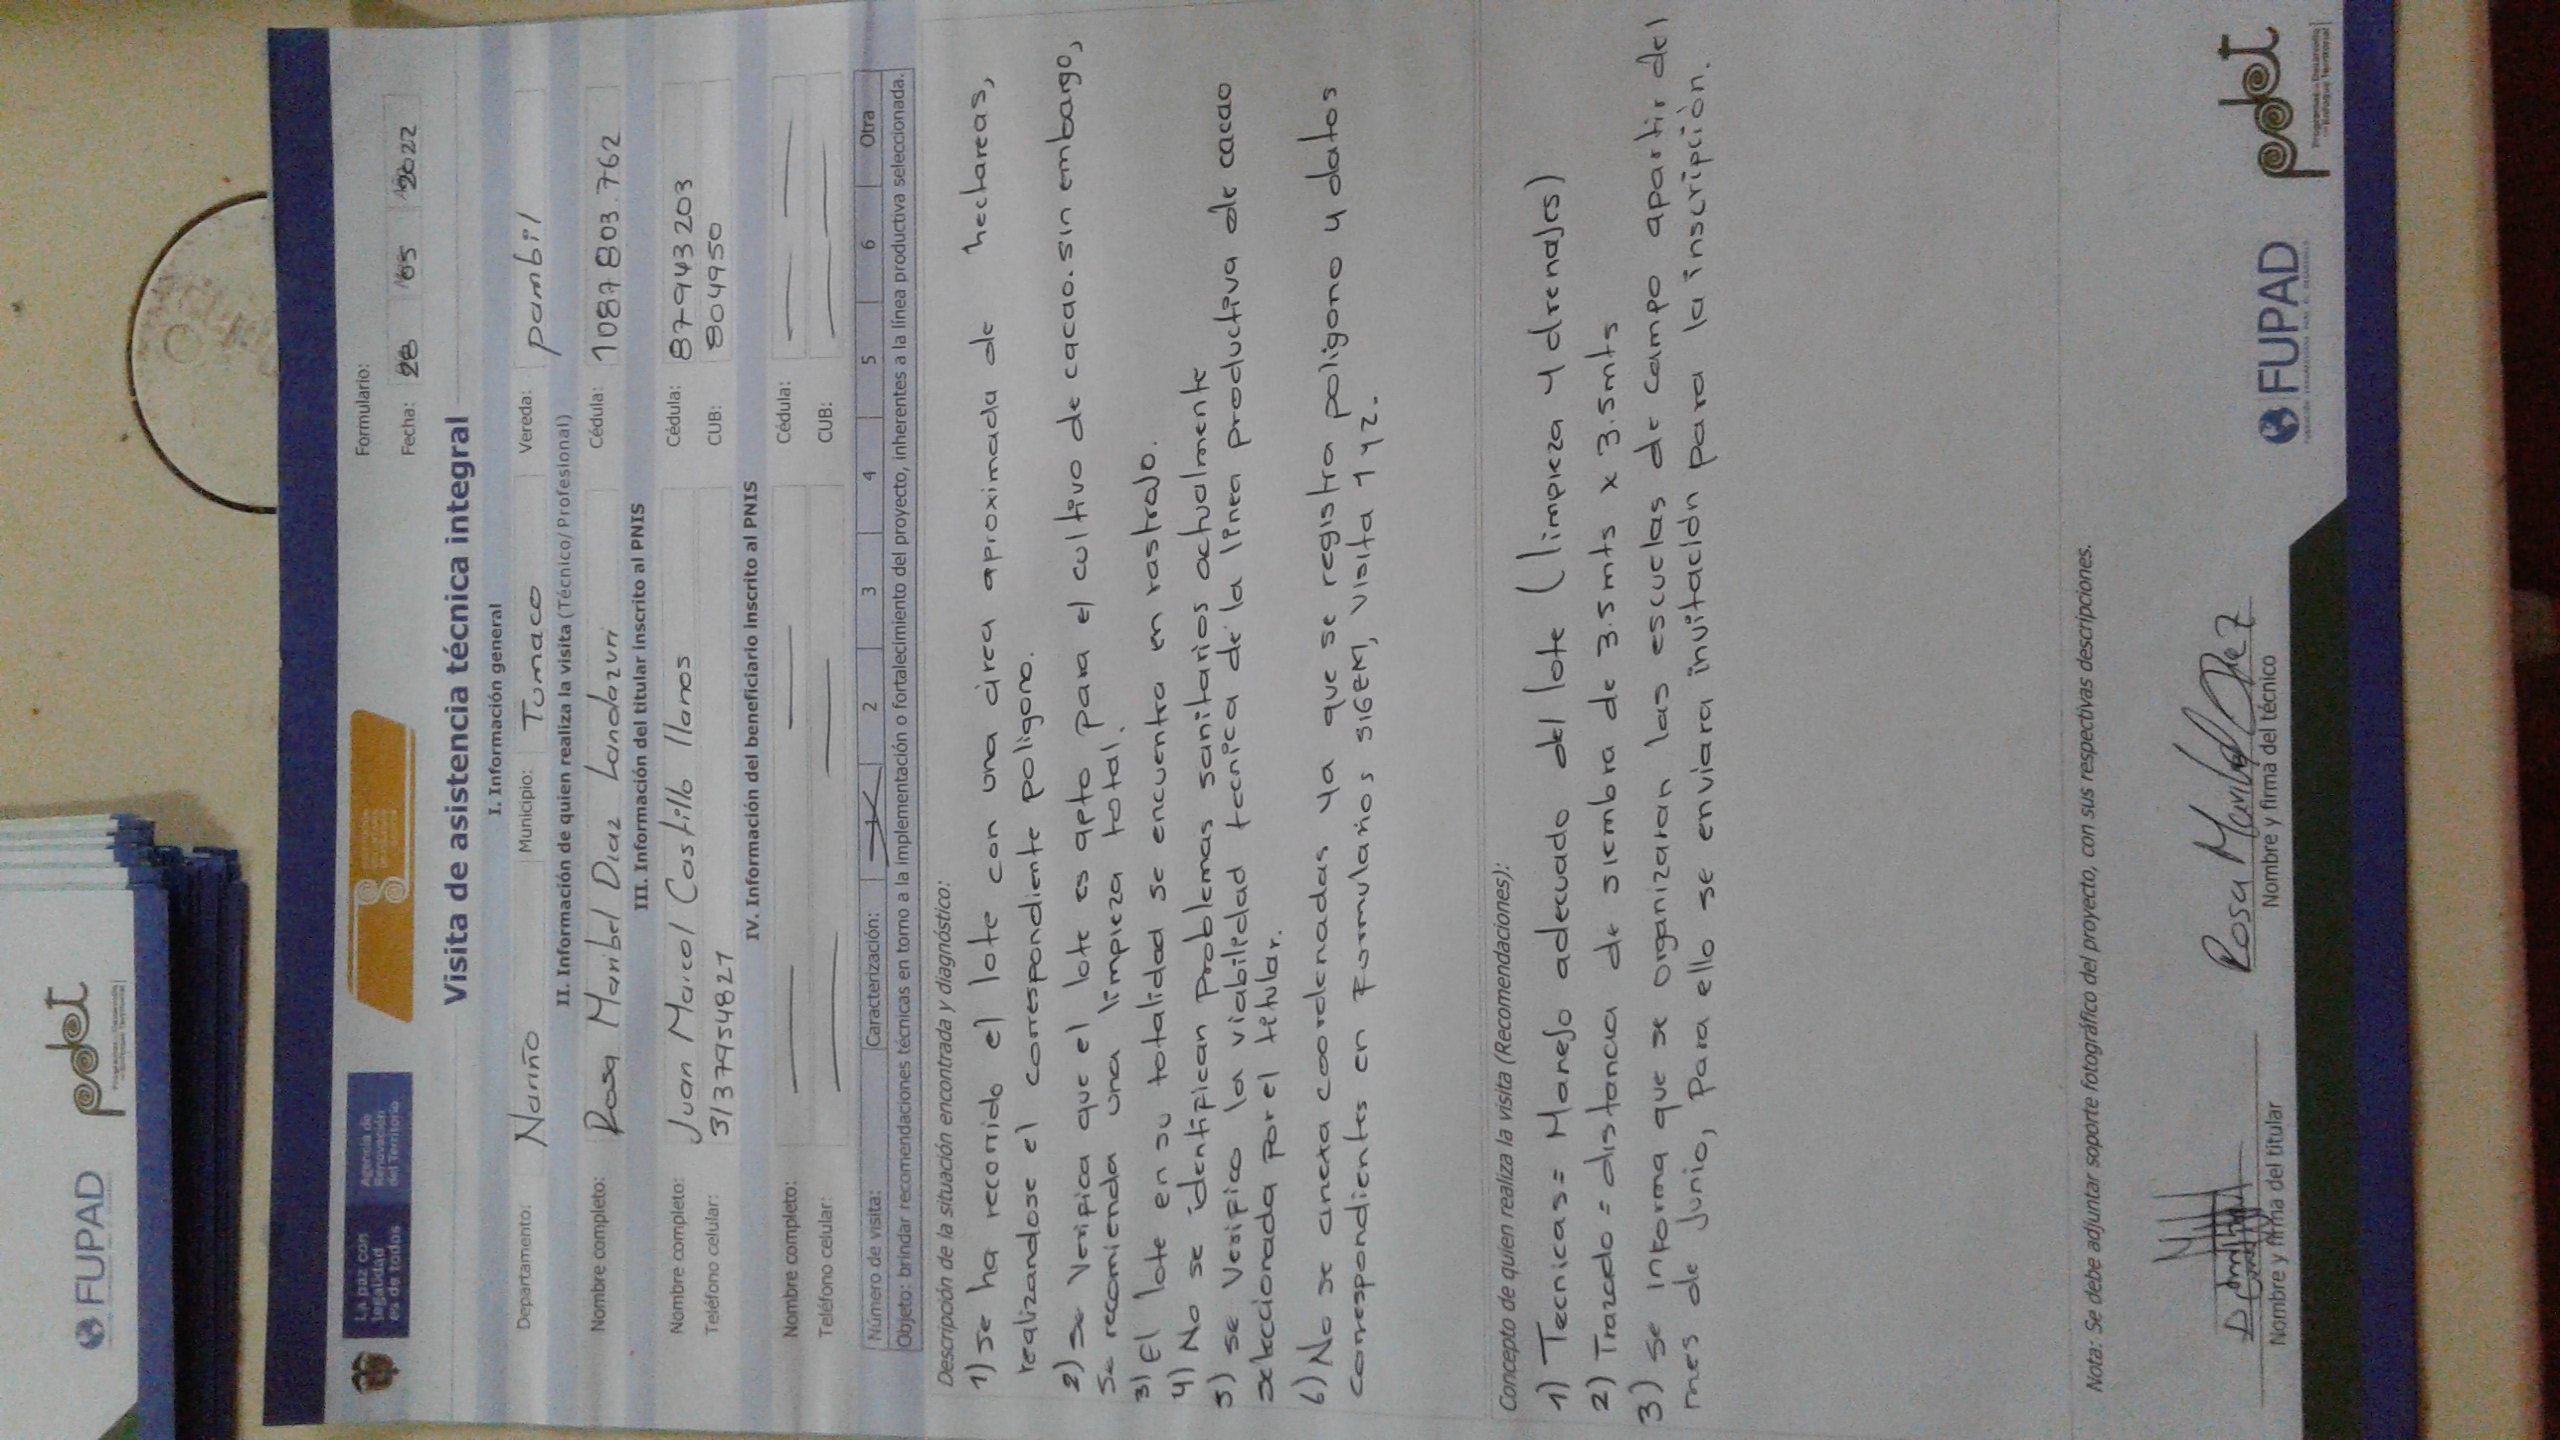 FUPAD
pdet
Programas de Desarrollo
con Enfoque Territorial
La paz con
legalidad
es de todos
Agencia de
Renovación
del Territorio
Formulario:
Fecha: 28 05 2022
Visita de asistencia técnica integral
I. Información general
Departamento: Nariño Municipio: Tumaco Vereda: pambil
II. Información de quien realiza la visita (Técnico/Profesional)
Nombre completo: Rosa Maribel Diaz Landazuri Cédula: 1087 803.762
III. Información del titular inscrito al PNIS
Nombre completo: Juan Marcel Castillo llanos Cédula: 87943203
Teléfono celular: 3137954827 CUB: 804950
IV. Información del beneficiario inscrito al PNIS
Nombre completo: Cédula:
Teléfono celular: CUB:
Número de visita: Caracterización: X 2 3 4 5 6 Otra
Objeto: brindar recomendaciones técnicas en torno a la implementación o fortalecimiento del proyecto, inherentes a la línea productiva seleccionada.
Descripción de la situación encontrada y diagnóstico:
1) se ha recorrido el lote con una área aproximada de hectareas,
realizandose el correspondiente poligono.
2) se verifica que el lote es apto para el cultivo de cacao. sin embargo,
se recomienda una limpieza total.
3) El lote en su totalidad se encuentra en rastrajo.
4) No se identifican Problemas sanitarios actualmente
5) se verifico la viabilidad tecnica de la linea productiva de cacao
seleccionada por el titular.
6) No se anexa coordenadas ya que se registra poligono y datos
correspondientes en Formulario; SIGEM, visita 1 y 2.
Concepto de quien realiza la visita (Recomendaciones):
1) Tecnicas = Manejo adecuado del lote (limpieza y drenajes)
2) Trazado = distancia de siembra de 3.5mts x 3.5mts
3) se informa que se organizaran las escuelas de campo apartir del
mes de Junio, Para ello se enviara invitación para la inscripción.
Nota: Se debe adjuntar soporte fotográfico del proyecto, con sus respectivas descripciones.
Rosa Maribel Diaz
Nombre y firma del titular
Nombre y firma del técnico
FUPAD
pdet
Programas de Desarrollo
con Enfoque Territorial